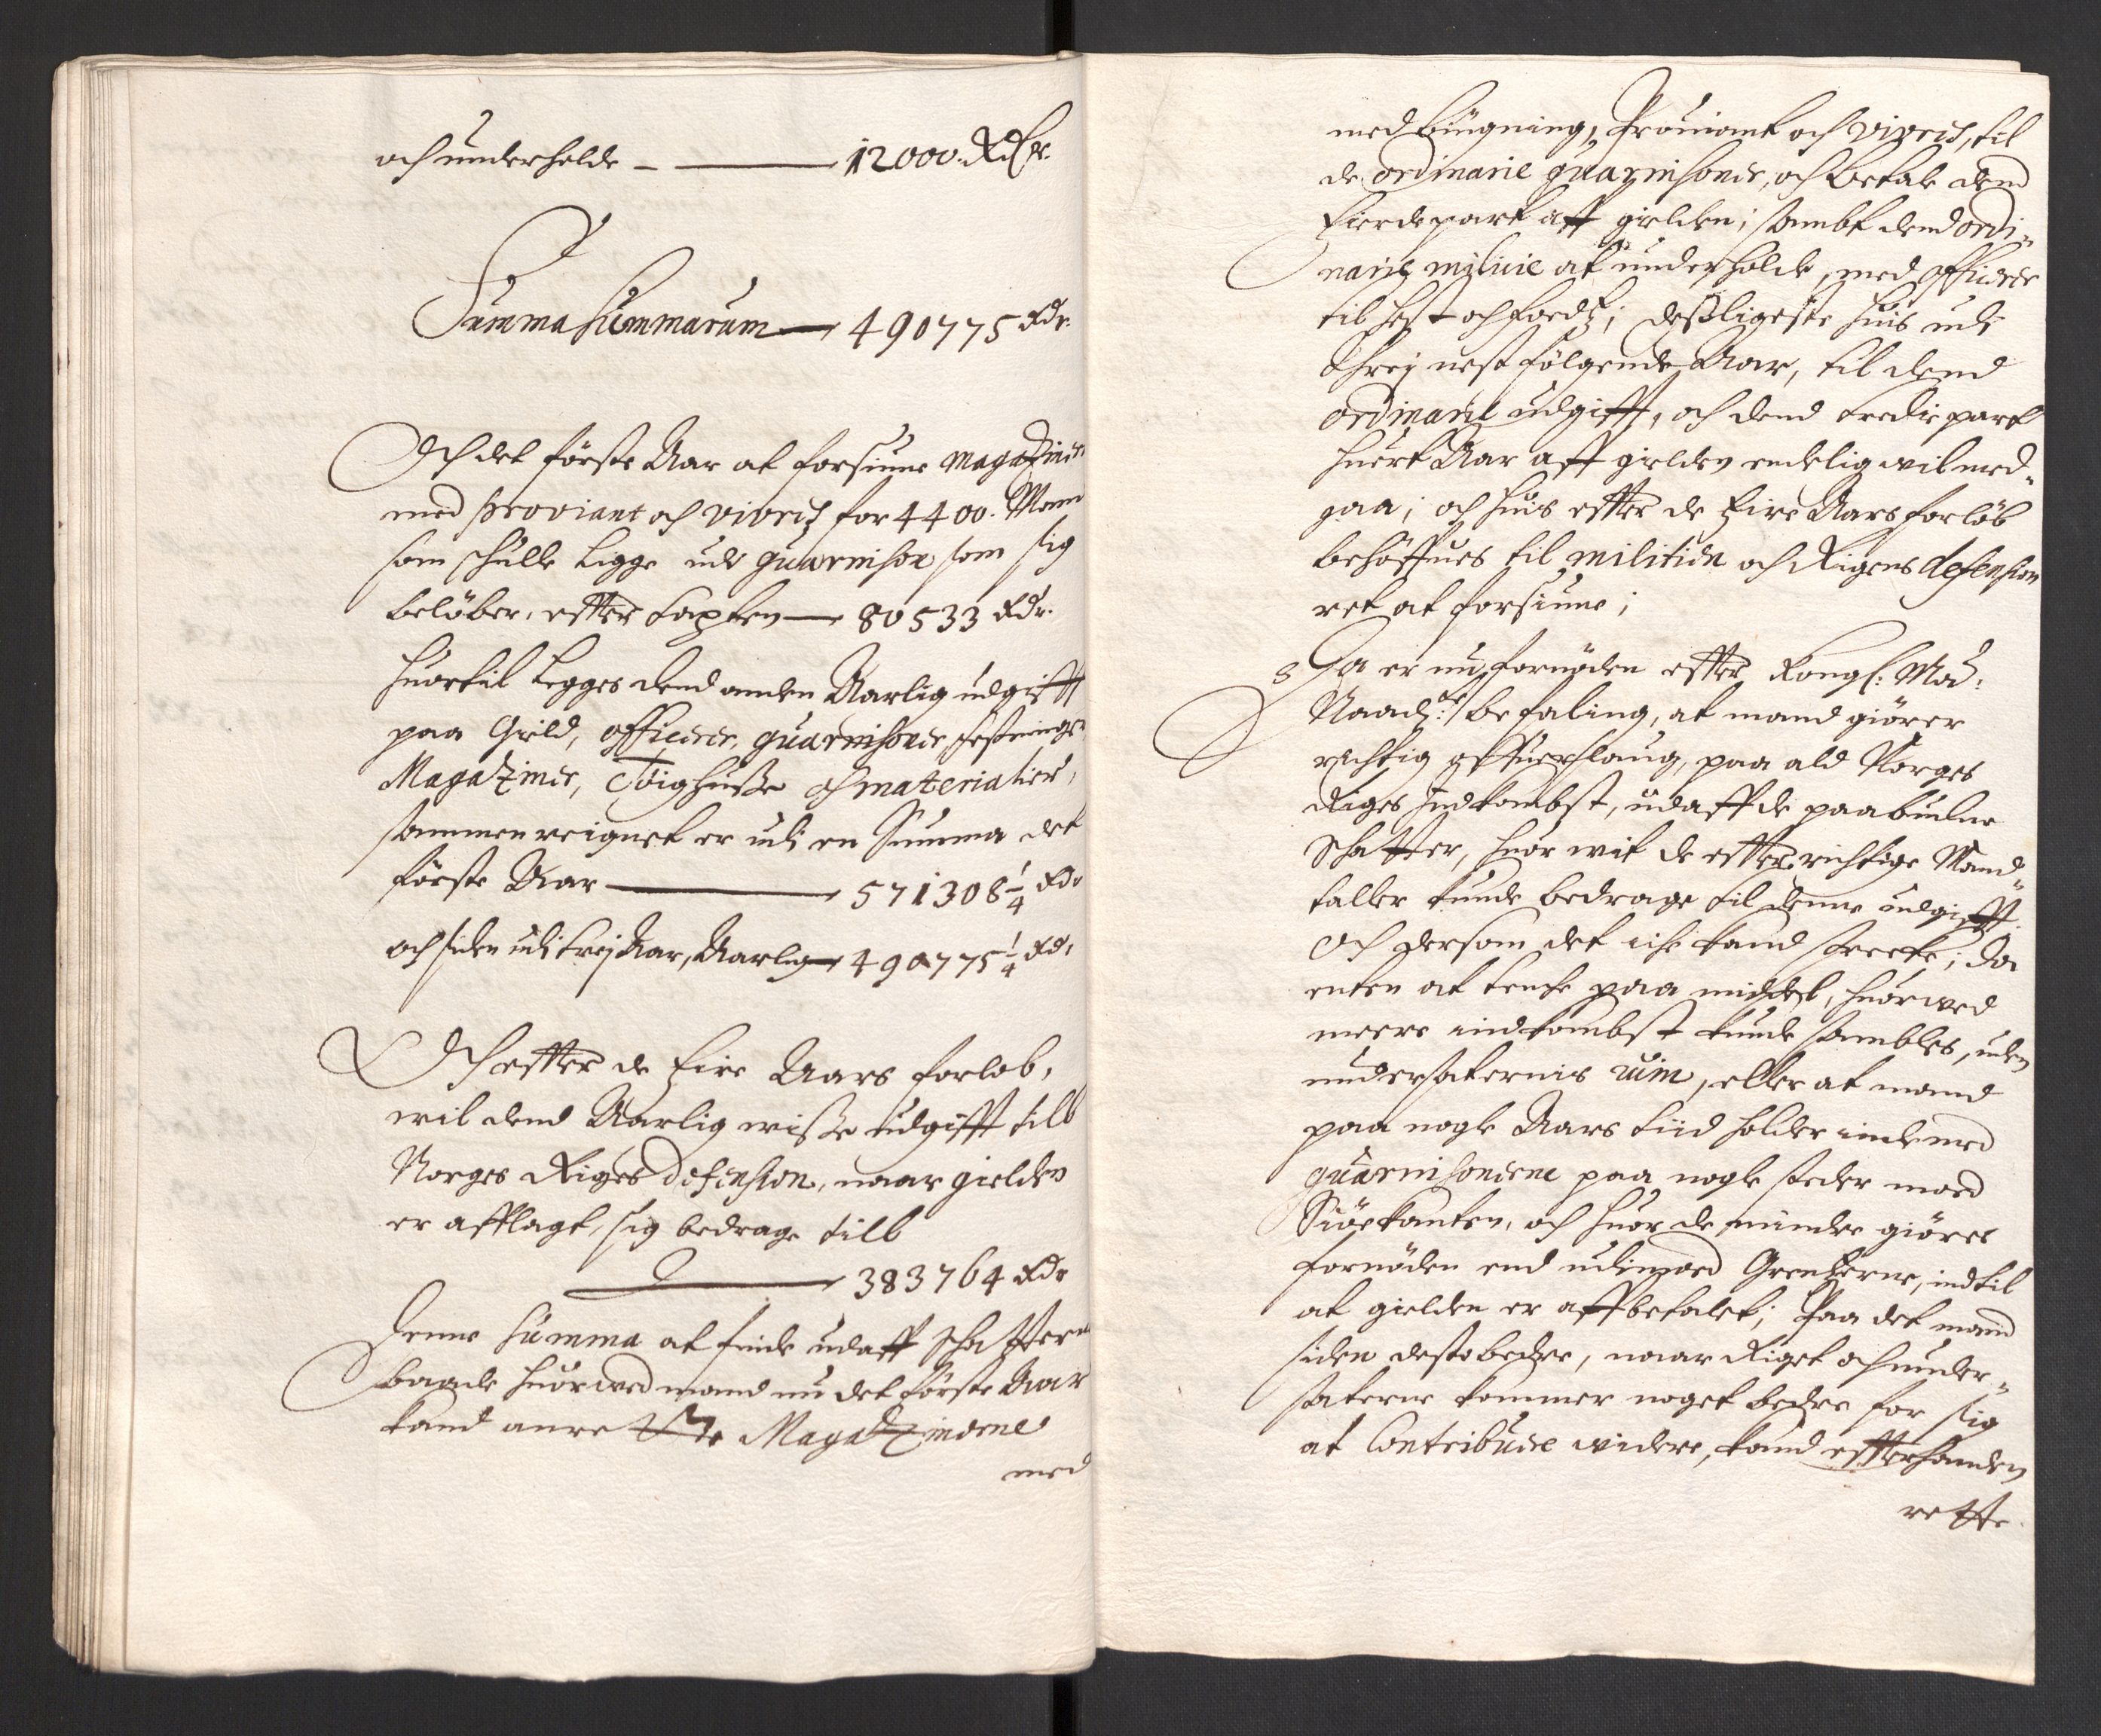 och underholde — 12000. Rdlr.
Summa Summarum — 490775 Rdr.
Och det förste Aar at forsiune magaziner
med proviant och vivres for 4400. Mand
som schulle ligge udi guarnison som sig
belöber, effter taxten — 80533 Rdr.
huortil legges dend anden Aarlig udgifft
paa Gield, officerer, guarnisoner, festninger
Magaziner, Tøighuse och materialier,
sammenreignet er udi en Summa det
förste Aar — 571308 1/4 Rdr
och siden udi trej Aar, Aarlig — 490775 1/4 Rdr
Och effter de fire Aars forlob,
wil dend Aarlig wisse udgifft till
Norges Riges defension, naar gielden
er afflagt, sig bedrage till
— 383764 Rdr
Denne summa at finde udaff schatterne
baade huorwed mand nu det förste Aar
kand anrette Magazinerne
med
med biugning, Proviant och vivres, til
de ordinarie guarnisoner, och betale dend
fierdepart aff gielden; sambt dend ordi-
narie milicie at underholde, med officerer
til hest och foedz; desligeste huis udi
threj nestfölgende Aar, til dend
ordinarie udgifft, och dend tredie part
huert Aar aff gielden endelig wil med-
gaa; och huis effter de fire Aars forlöb
behöffues til militien och Rigens defension
ret at forsiune;
Da er nu fornöden effter Kongl: May:
Naadste befaling, at mand giörer
richtig offuerslaug, paa ald Norges
Riges Indkombst, udaff de paabudne
Schatter, huor wit de effter richtige Mand-
taller kunde bedrage til denne udgifft.
Och dersom det iche kand strecke; da
enten at tencke paa middel, huorwed
meere indkombst kunde sambles, uden
undersaternis ruin, eller at mand
paa nogle Aars tiid holder inde med
guarnisonerne paa nogle steder moed
Siökanten, och huor de mindre giöres
fornöden end udimoed Grentzerne, indtil
at gielden er affbetalet; Paa det mand
siden desto bedre, naar Riget och under-
saterne kommer noget bedre for sig
at Contribuere widere, kand effterhanden
rette.